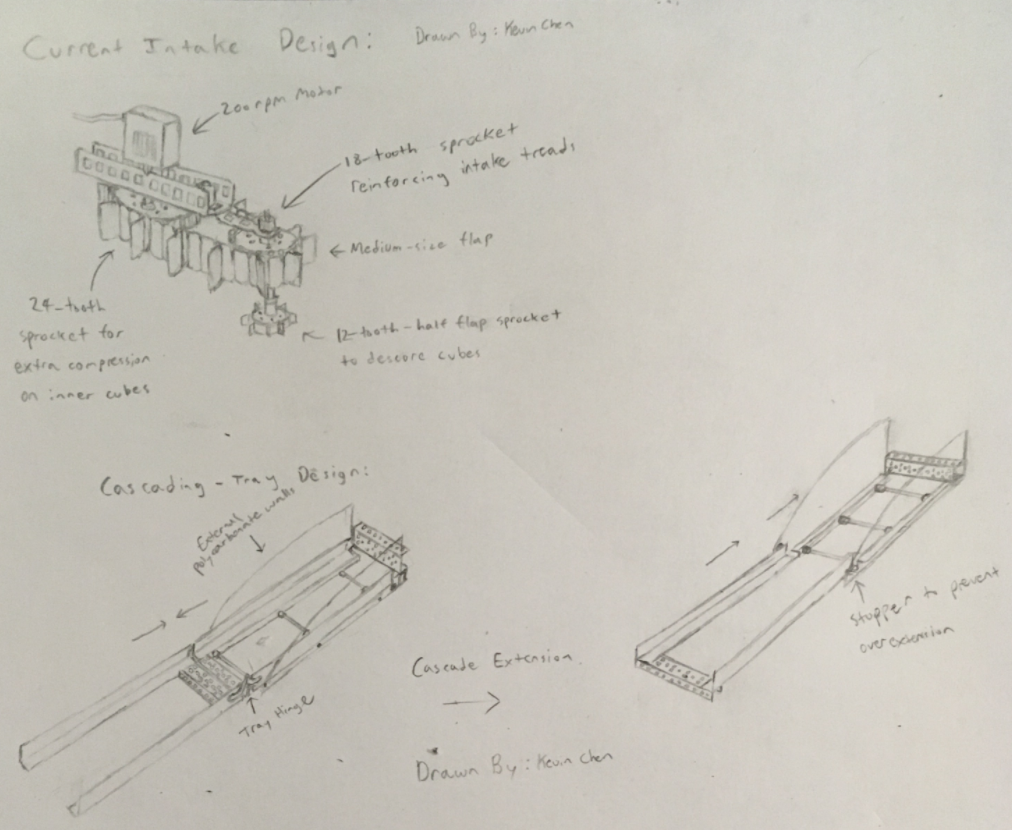 Current Intake Design:
Drawn By: Kevin Chen
200rpm Motor
18-tooth sprocket
reinforcing intake treads
Medium-size flap
24-tooth
sprocket for
extra compression
on inner cubes
12-tooth-half flap sprocket
to descore cubes
Cascading-Tray Design:
External
polycarbonate walls
Tray Hinge
Cascade Extension
Stopper to prevent
overextension
Drawn By: Kevin Chen